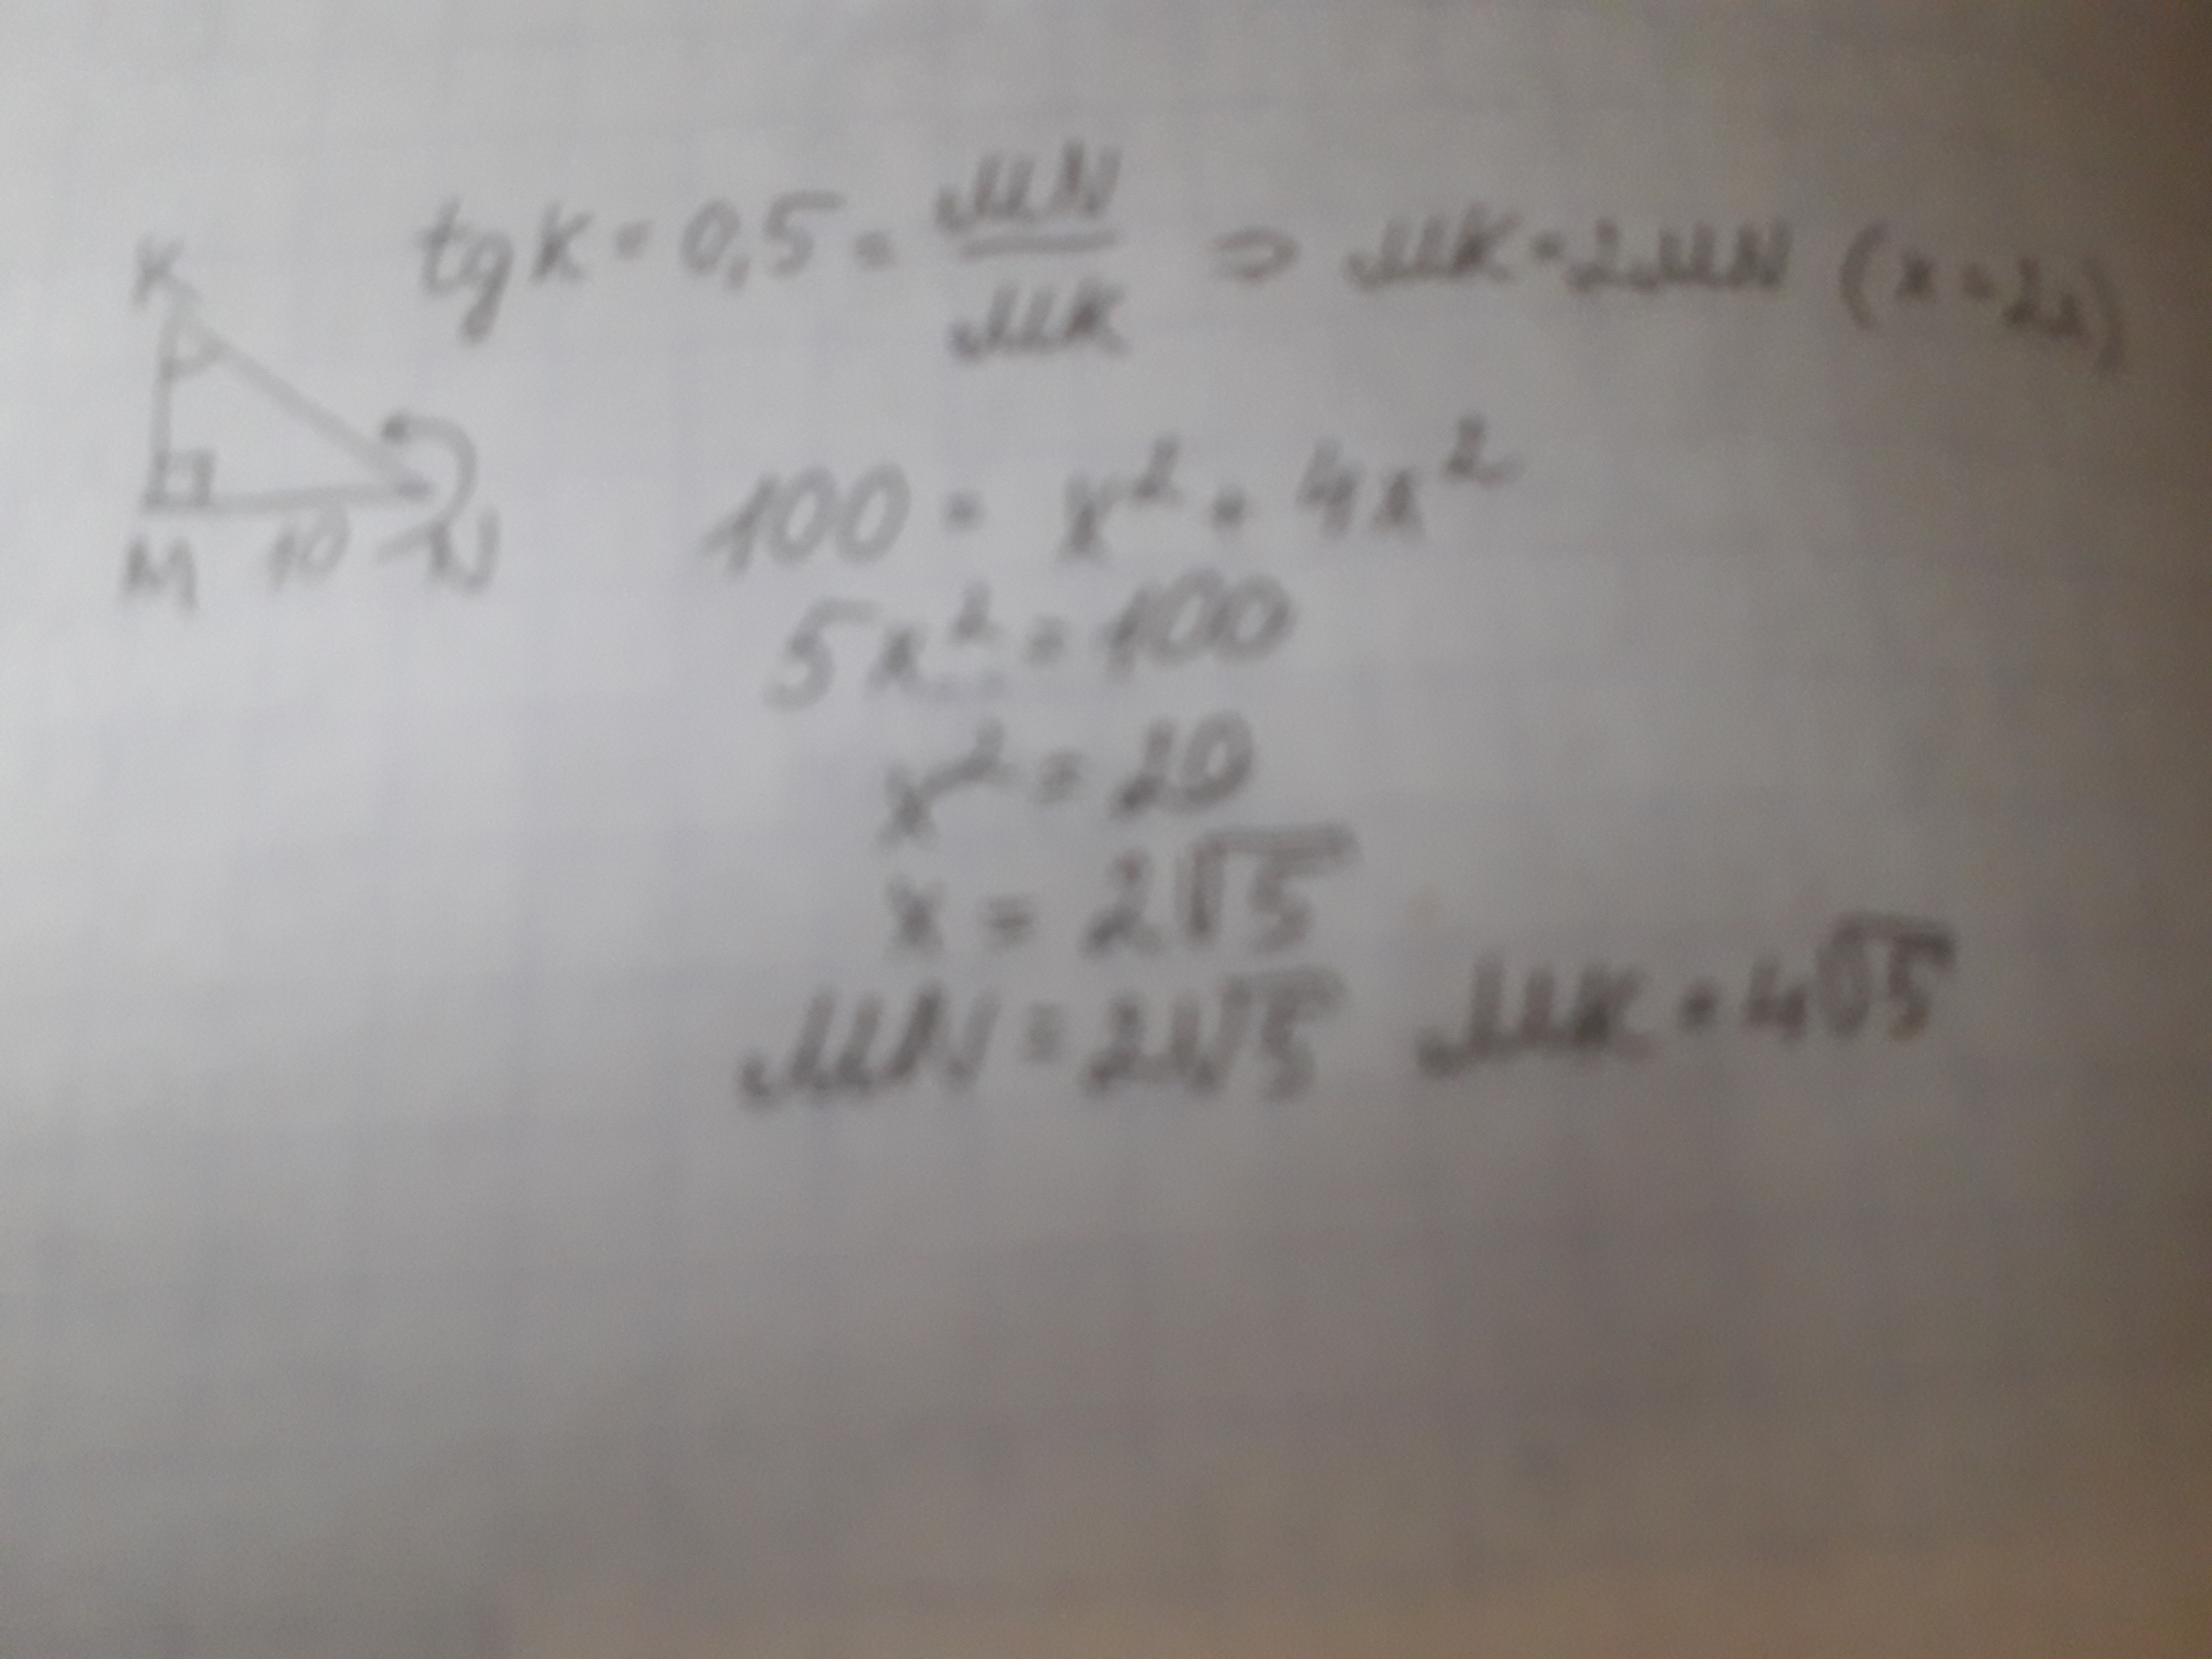 tg K = 0,5 = MN/MK ⇒ MK = 2MN (x = 2x)
K
M 10 N
100 = x² + 4x²
5x² = 100
x² = 20
x = 2√5
MN = 2√5 MK = 4√5